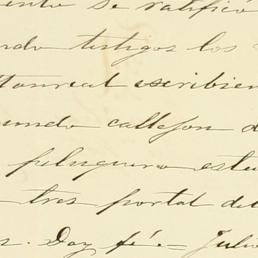 ento se ratificó
ndo testigos los
Monreal escribien
gundo callejon d
peluquero estu
tres portal de
s. Doy fé.— Julio